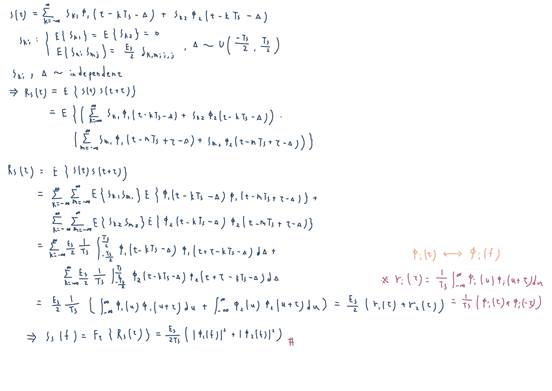 s(t) = Σ_{k=-∞}^{∞} S_{k1} φ_1(t - kT_s - Δ) + S_{k2} φ_2(t - kT_s - Δ)
S_{ki} : { E{S_{k1}} = E{S_{k2}} = 0
E{S_{ki} S_{mj}} = E_s/2 δ_{k,m; i,j} , Δ ~ U(-T_s/2, T_s/2)
S_{ki}, Δ ~ independent
⇒ R_s(τ) = E{s(t) s(t+τ)}
= E{(Σ_{k=-∞}^{∞} S_{k1} φ_1(t - kT_s - Δ) + S_{k2} φ_2(t - kT_s - Δ)) ·
(Σ_{m=-∞}^{∞} S_{m1} φ_1(t - mT_s + τ - Δ) + S_{m2} φ_2(t - mT_s + τ - Δ))}
R_s(τ) = E{s(t) s(t+τ)}
= Σ_{k=-∞}^{∞} Σ_{m=-∞}^{∞} E{S_{k1} S_{m1}} E{φ_1(t - kT_s - Δ) φ_1(t - mT_s + τ - Δ)} +
Σ_{k=-∞}^{∞} Σ_{m=-∞}^{∞} E{S_{k2} S_{m2}} E{φ_2(t - kT_s - Δ) φ_2(t - mT_s + τ - Δ)}
= Σ_{k=-∞}^{∞} E_s/2 1/T_s ∫_{-T_s/2}^{T_s/2} φ_1(t - kT_s - Δ) φ_1(t + τ - kT_s - Δ) dΔ +
Σ_{k=-∞}^{∞} E_s/2 1/T_s ∫_{-T_s/2}^{T_s/2} φ_2(t - kT_s - Δ) φ_2(t + τ - kT_s - Δ) dΔ
φ_i(t) ⟷ Φ_i(f)
* r_i(τ) = 1/T_s ∫_{-∞}^{∞} φ_i(u) φ_i(u+τ) du
= E_s/2 1/T_s (∫_{-∞}^{∞} φ_1(u) φ_1(u+τ) du + ∫_{-∞}^{∞} φ_2(u) φ_2(u+τ) du) = E_s/2 (r_1(τ) + r_2(τ))
= 1/T_s (φ_i(τ) * φ_i(-τ))
⇒ S_s(f) = F_τ{R_s(τ)} = E_s/2T_s (|Φ_1(f)|² + |Φ_2(f)|²) #